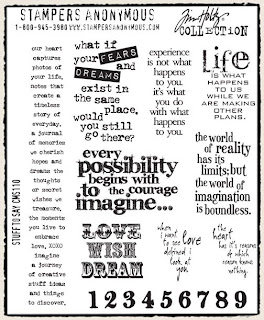 STAMPERS ANONYMOUS
1-800-945-3980 WWW.STAMPERSANONYMOUS.COM
Tim Holtz
COLLECTION
our heart
captures
photos of
your life,
notes that
create a
timeless
story of
everyday.
a journal
of memories
we cherish
hopes and
dreams the
thoughts
or secret
wishes we
treasure,
the moments
you live to
embrace
love, XOXO
imagine
a journey
of creative
stuff ideas
and things
to discover.
STUFF TO SAY CMS110
what if
your FEARS
and
DREAMS
exist in
the same
place.
would you
still go
there?
experience
is not what
happens to
you.
it's what
you do
with what
happens to
you.
Life
IS WHAT
HAPPENS
TO US
WHILE WE
ARE MAKING
OTHER
PLANS.
the world
of reality
has its
limits: but
the world of
imagination
is boundless.
every
possibility
begins with
the courage
to
imagine...
LOVE
WISH
DREAM
when i
want to
see love
defined i
look at
you.
the
heart
has it's reasons
of which
reason knows
nothing.
123456789